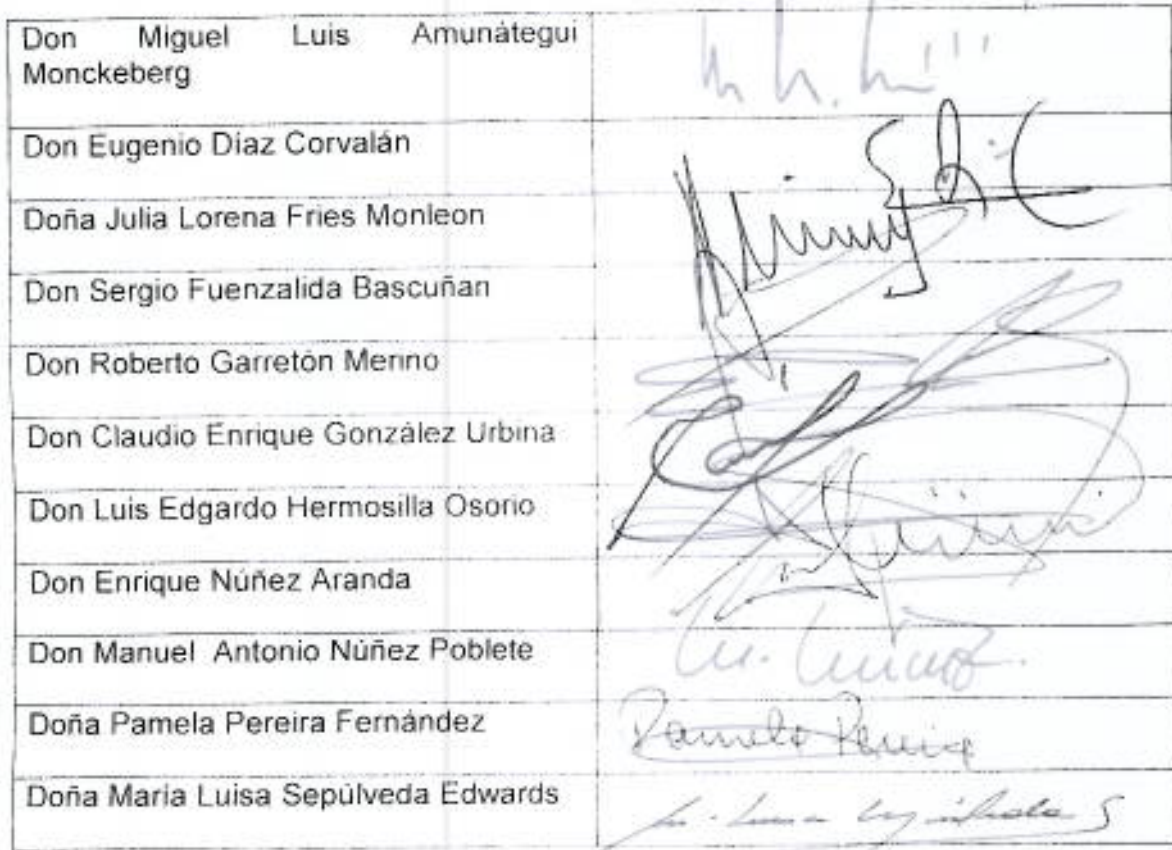 Don Miguel Luis Amunátegui
Monckeberg
Don Eugenio Díaz Corvalán
Doña Julia Lorena Fries Monleon
Don Sergio Fuenzalida Bascuñan
Don Roberto Garretón Merino
Don Claudio Enrique González Urbina
Don Luis Edgardo Hermosilla Osorio
Don Enrique Núñez Aranda
Don Manuel Antonio Núñez Poblete
Doña Pamela Pereira Fernández
Pamela Pereira
Doña María Luisa Sepúlveda Edwards